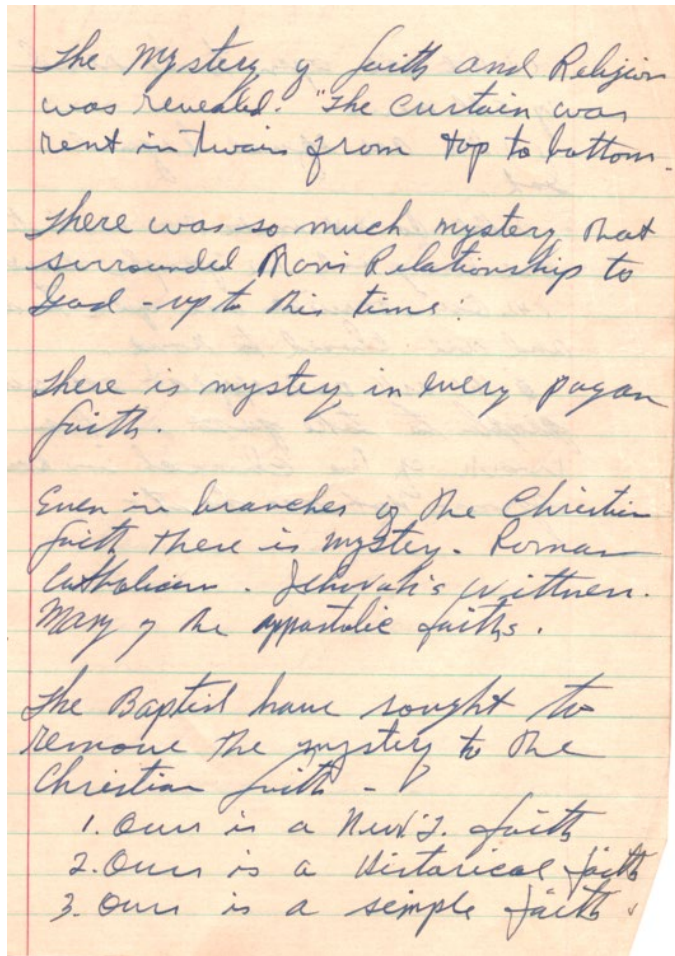 The Mystery of faith and Religion
was revealed. "The curtain was
rent in twain from top to bottom.
There was so much mystery that
surrounded Man's Relationship to
God - up to this time.
There is mystery in every pagan
faith.
Even in branches of the Christian
faith there is mystery. Roman
Catholicism. Jehovah's Wittness.
Many of the appostolic faiths.
The Baptist have sought to
remove the mystery to the
Christian faith -
1. Ours is a New T. faith
2. Ours is a Historical faith
3. Ours is a simple faith